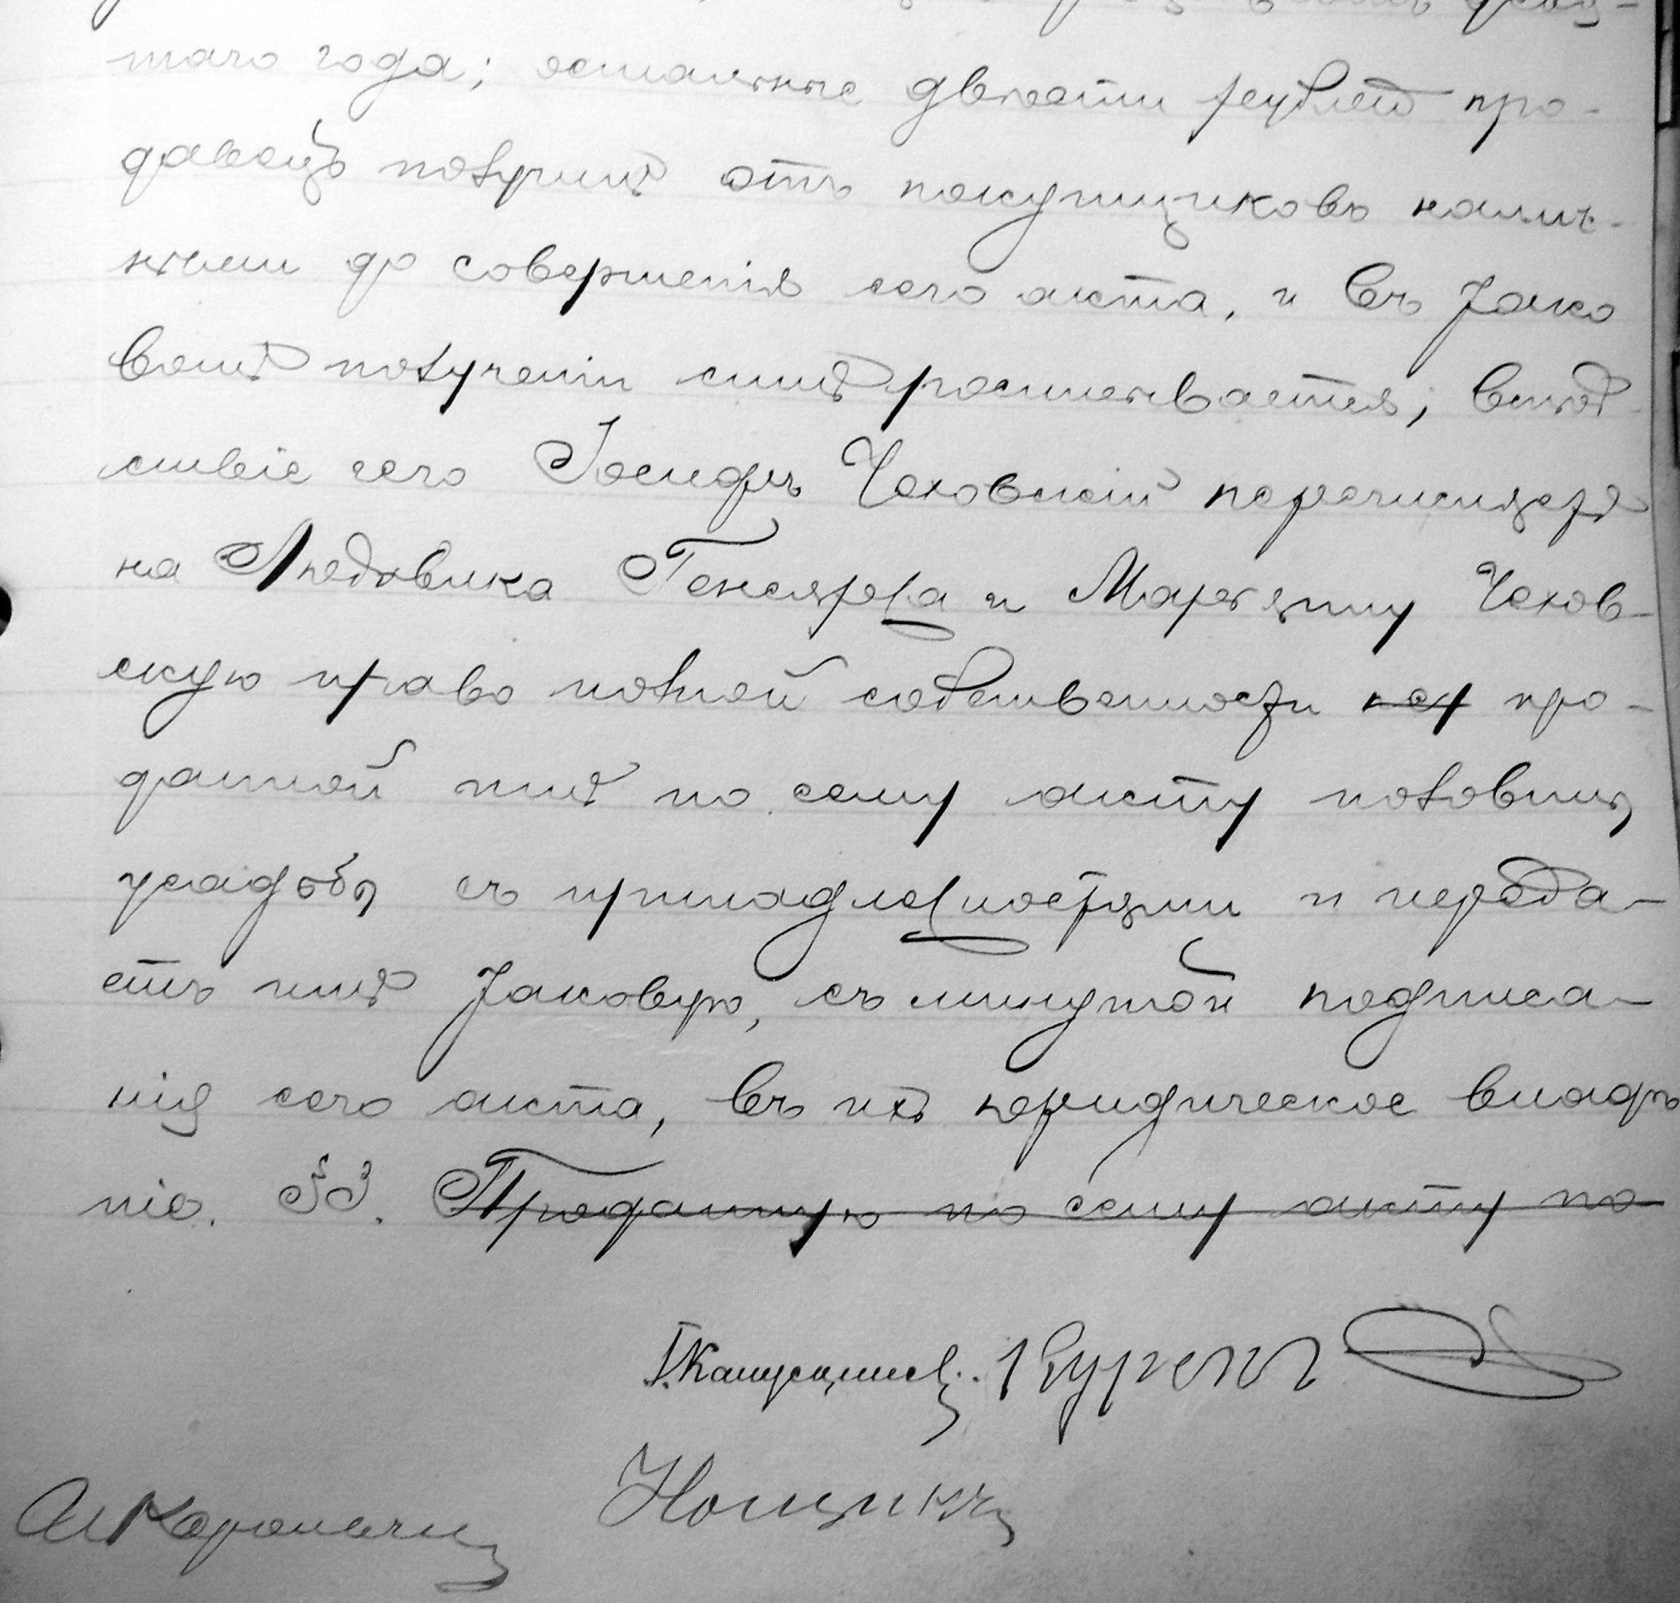 таго года; остальные двѣсти рублей про-
давецъ получилъ отъ покупщиковъ налич-
ными до совершенія сего акта, и въ тако
вомъ полученіи симъ росписывается; вслѣд-
ствіе сего Іосифъ Чеховскій перечисляетъ
на Людовика Генсяржа и Марьянну Чехов-
скую право полной собственности про-
данной имъ по сему акту половины
усадьбы съ принадлежностями и переда-
етъ имъ таковую, съ минутой подписа-
нія сего акта, въ ихъ юридическое владѣ
ніе. Продажную по сему акту по-